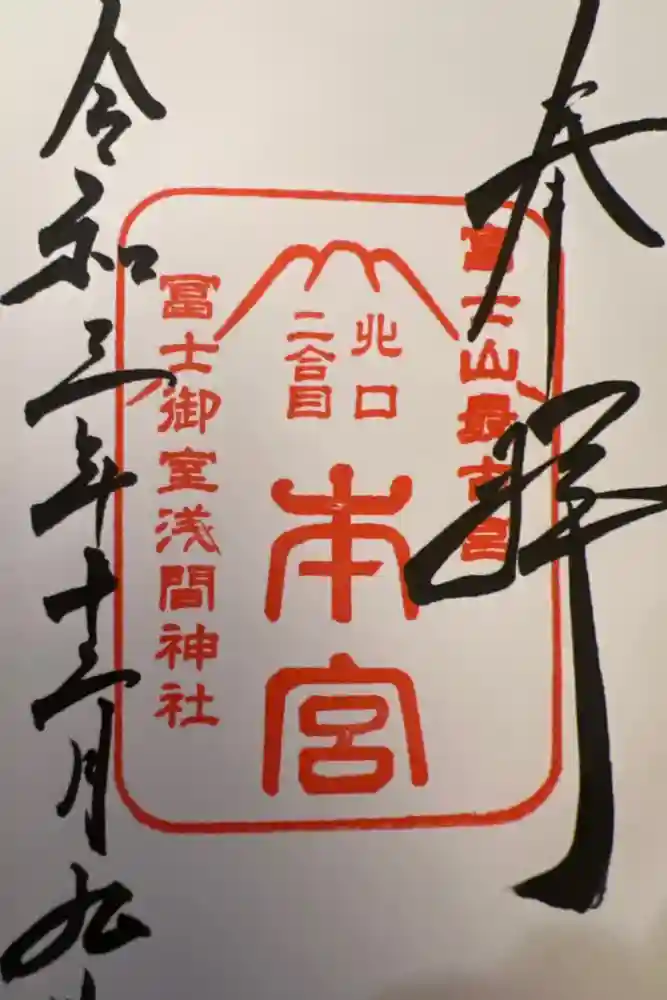 奉拝
富士山最古宮
北口
二合目
本宮
冨士御室浅間神社
令和三年十二月九日